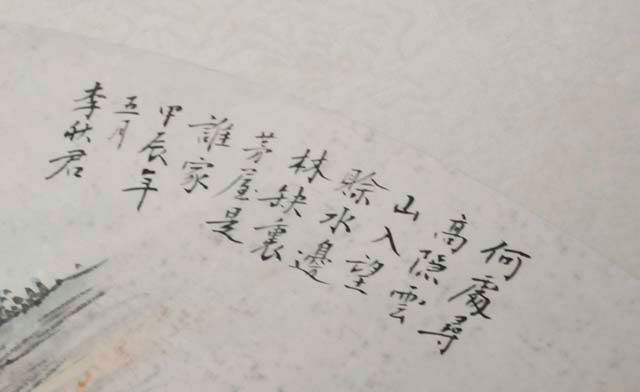 何處尋
高隱雲
山入望
賒水邊
林缺裏
茅屋是
誰家
甲辰年
五月
李秋君